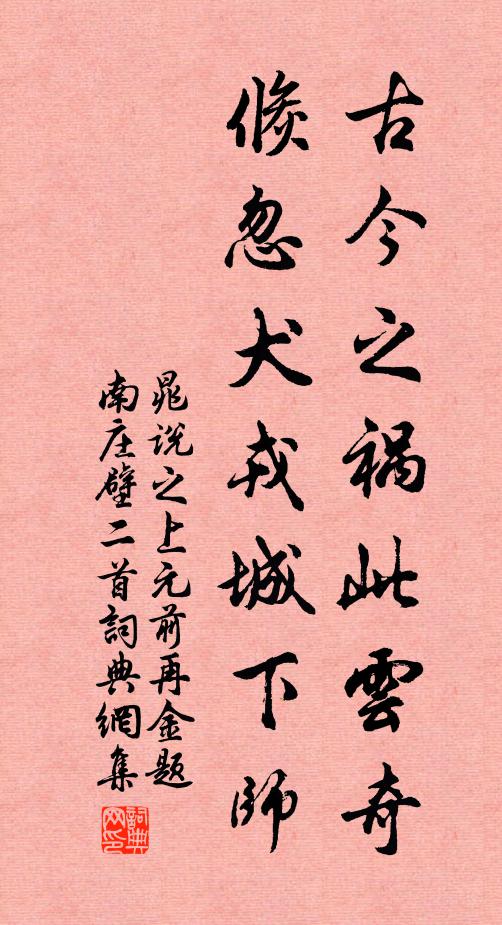 古今之祸此雲奇
倏忽犬戎城下師
晁说之上元前再金题
南庄壁二首詞典網集
詞典网印